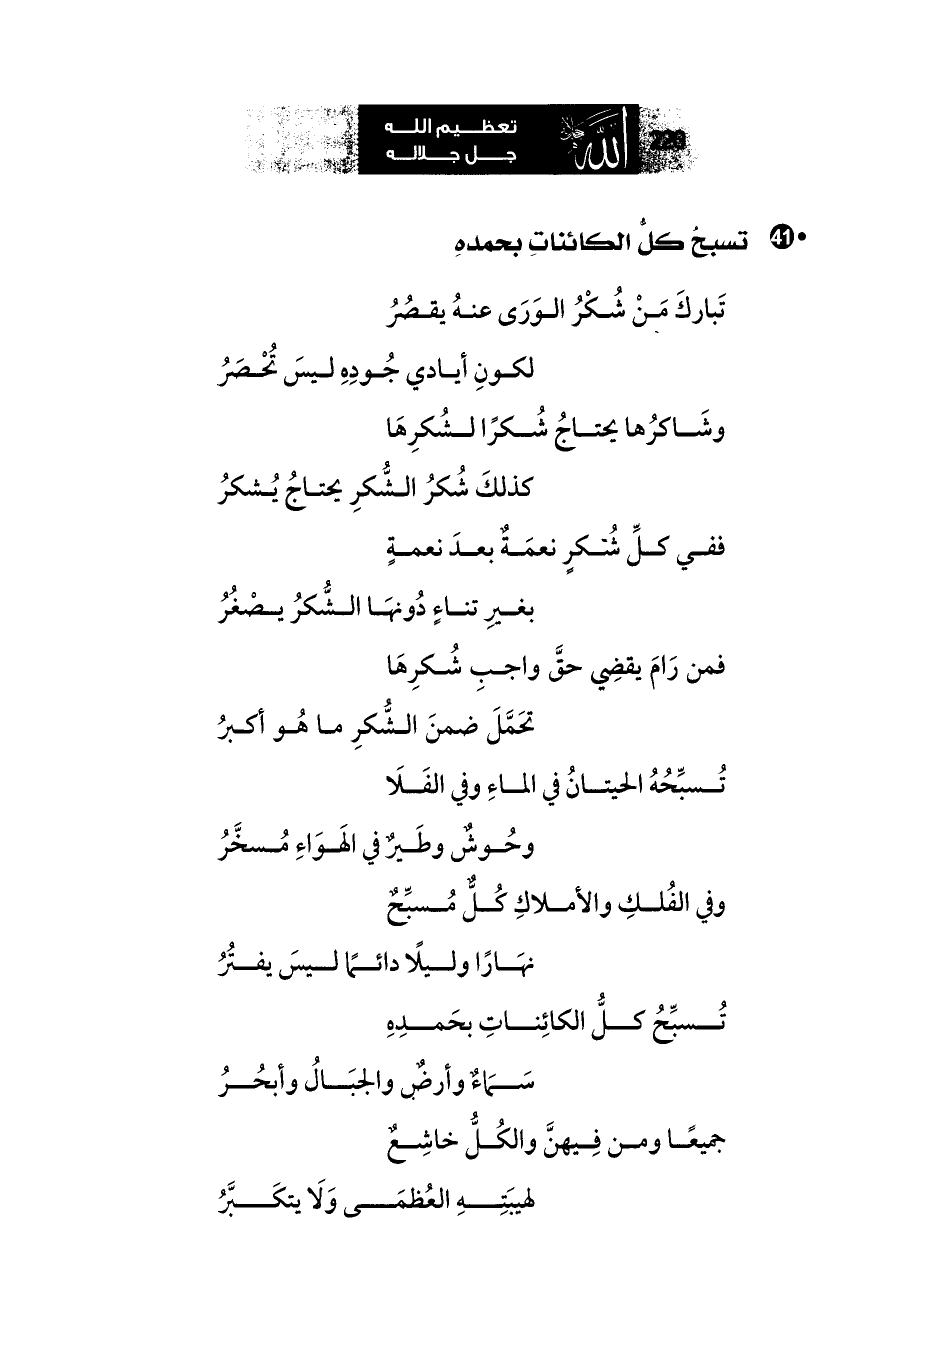 تعظيم الله
جل جلاله
الله جل جلاله
41• تسبحُ كلُّ الكائناتِ بحمدهِ
تَباركَ مَنْ شُكْرُ الوَرَى عنهُ يقصُرُ
لكونِ أيادي جُودِهِ ليسَ تُحْصَرُ
وشَاكرُها يحتاجُ شُكرًا لشُكرِهَا
كذلكَ شُكرُ الشُّكرِ يحتاجُ يُشكرُ
ففي كلِّ شُكرٍ نعمَةٌ بعدَ نعمةٍ
بغيرِ تناءٍ دُونهَا الشُّكرُ يصْغُرُ
فمن رَامَ يقضِي حقَّ واجبِ شُكرِهَا
تحَمَّلَ ضمنَ الشُّكرِ ما هُو أكبرُ
تُسبِّحُهُ الحيتانُ في الماءِ وفي الفَلَا
وحُوشٌ وطَيرٌ في الهَوَاءِ مُسخَّرُ
وفي الفُلكِ والأملاكِ كُلٌّ مُسبِّحٌ
نهَارًا وليلًا دائمًا ليسَ يفتُرُ
تُسبِّحُ كلُّ الكائِناتِ بحَمدِهِ
سَمَاءٌ وأرضٌ والجبَالُ وأبحُرُ
جميعًا ومن فِيهنَّ والكُلُّ خاشِعٌ
لهيبَتِهِ العُظمَى وَلَا يتكَبَّرُ